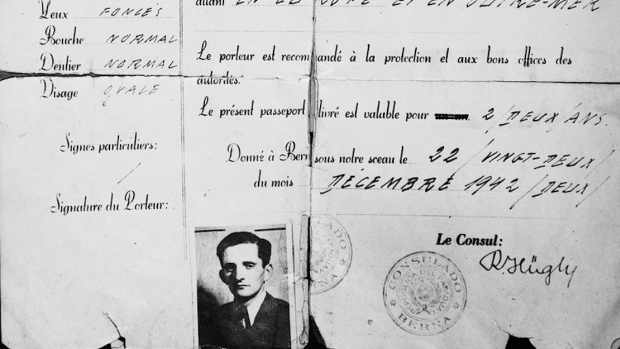 Yeux FONCÉS
Bouche NORMAL
Dentier NORMAL
Visage OVALE
Signes particuliers:
/
Signature du Porteur:
allant EN EUROPE ET EN OUTRE-MER
Le porteur est recommandé à la protection et aux bons offices des
autorités.
Le présent passeport livré est valable pour 2/DEUX/ANS.
Donné à Bern sous notre sceau le 22 /VINGT-DEUX/
du mois DÉCEMBRE 1942 /DEUX/
Le Consul:
RHügly
CONSULADO
BERNA